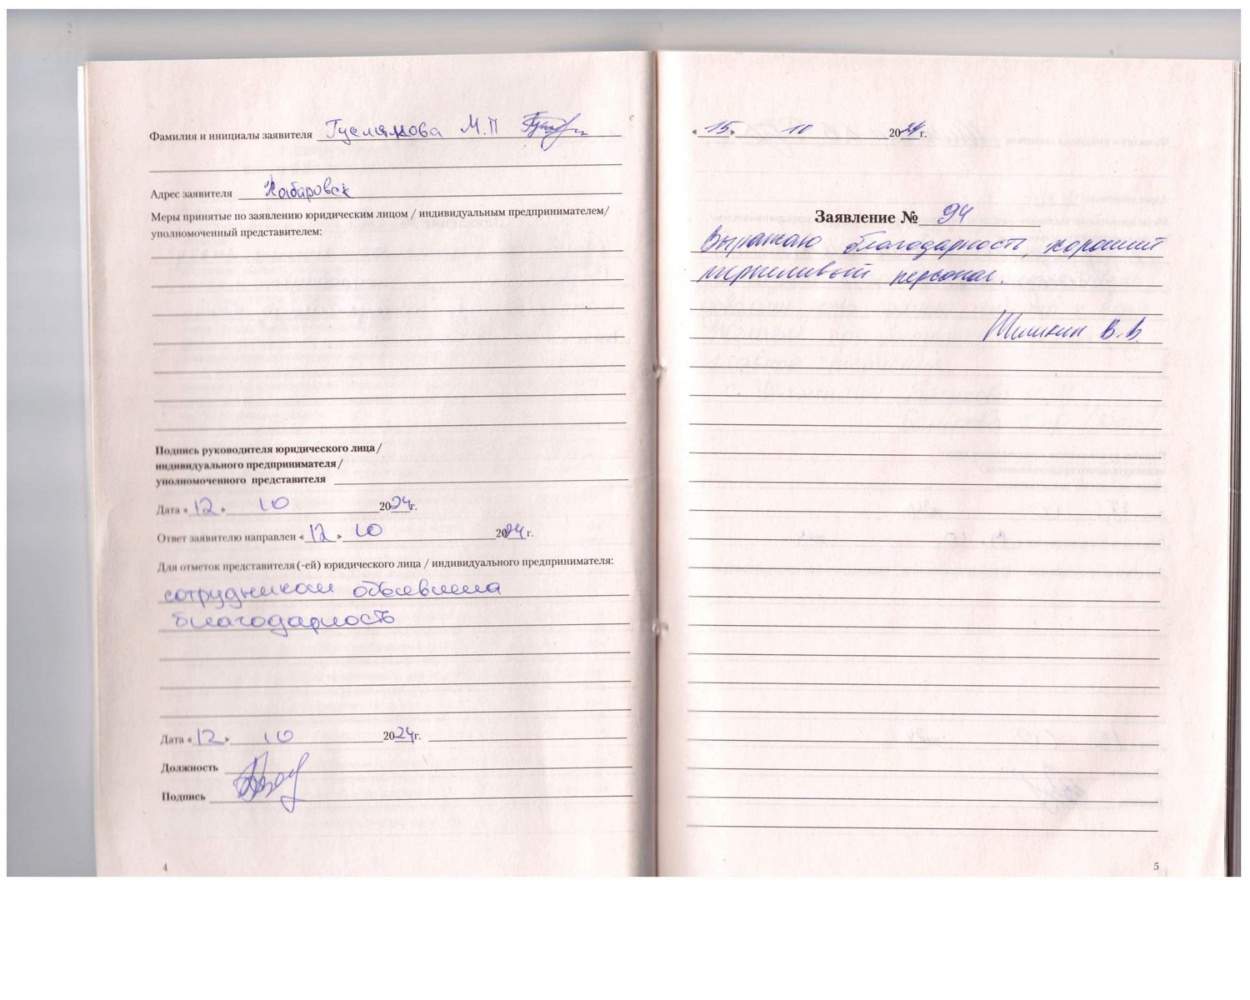 Фамилия и инициалы заявителя Гуслякова М.П
Адрес заявителя Хабаровск
Меры принятые по заявлению юридическим лицом / индивидуальным предпринимателем/
уполномоченный представителем:
Подпись руководителя юридического лица/
индивидуального предпринимателя/
уполномоченного представителя
Дата «12» 10 2024г.
Ответ заявителю направлен «12» 10 2024г.
Для отметок представителя (-ей) юридического лица / индивидуального предпринимателя:
сотрудникам объявлена
благодарность
Дата «12» 10 2024г.
Должность
Подпись
4
«15» 10 2024г.
Заявление № 94
Выражаю благодарность, хороший
терпеливый персонал.
Шишкин В.В.
5